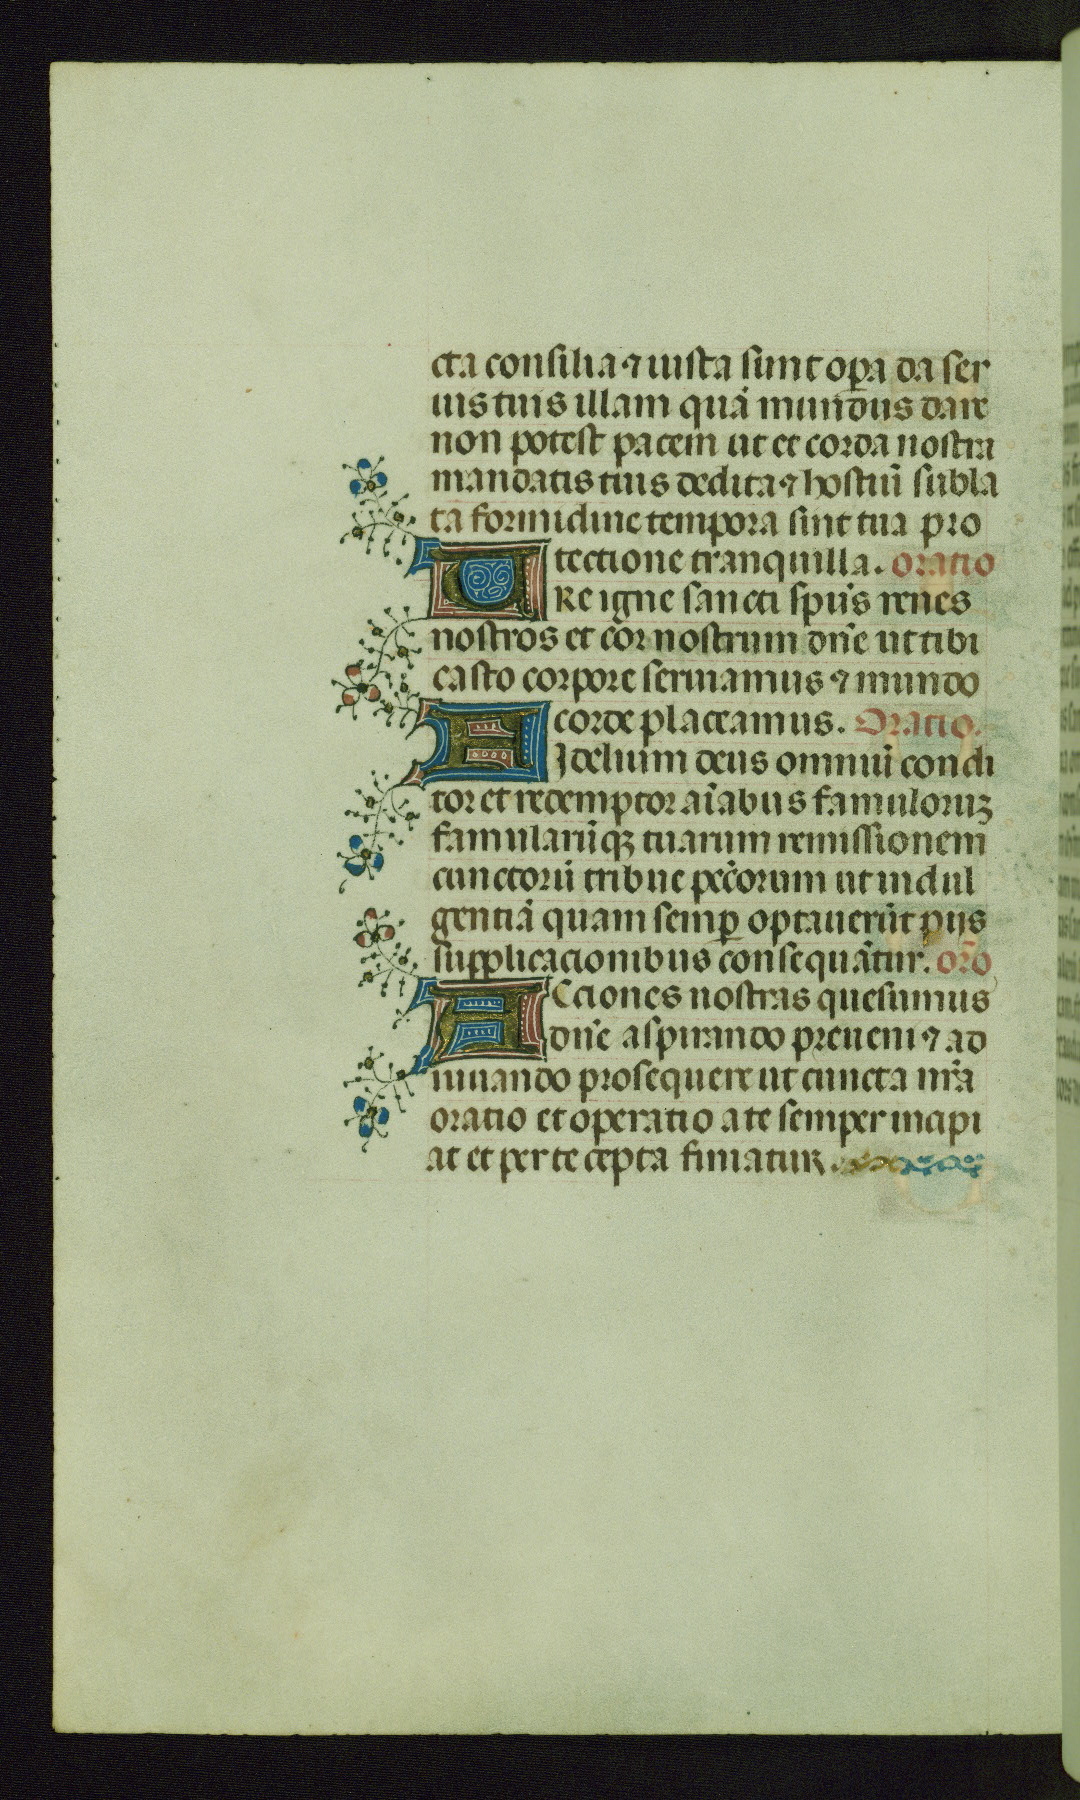 cta consilia ⁊ iusta sunt op̄a da ser
uis tuis illam quā mundus dare
non potest pacem ut et corda nostra
mandatis tuis dedita ⁊ hostiū subla
ta formidine tempora sint tua pro
tectione tranquilla. oratio
URe igne sancti sp̄us renes
nostros et cor nostrum dn̄e ut tibi
casto corpore seruiamus ⁊ mundo
corde placeamus. Oratio.
FIdelium deus omniū condi
tor et redemptor aīabus famuloruꝫ
famularūqꝫ tuarum remissionem
cunctorū tribue pec̄orum ut indul
gentiā quam semꝑ optauerūt pijs
supplicacionibus consequātur. or̄o
ACciones nostras quesumus
dn̄e aspirando preueni ⁊ ad
iuuando prosequere ut cuncta nr̄a
oratio et operatio a te semper incipi
at et per te cepta finiatur.